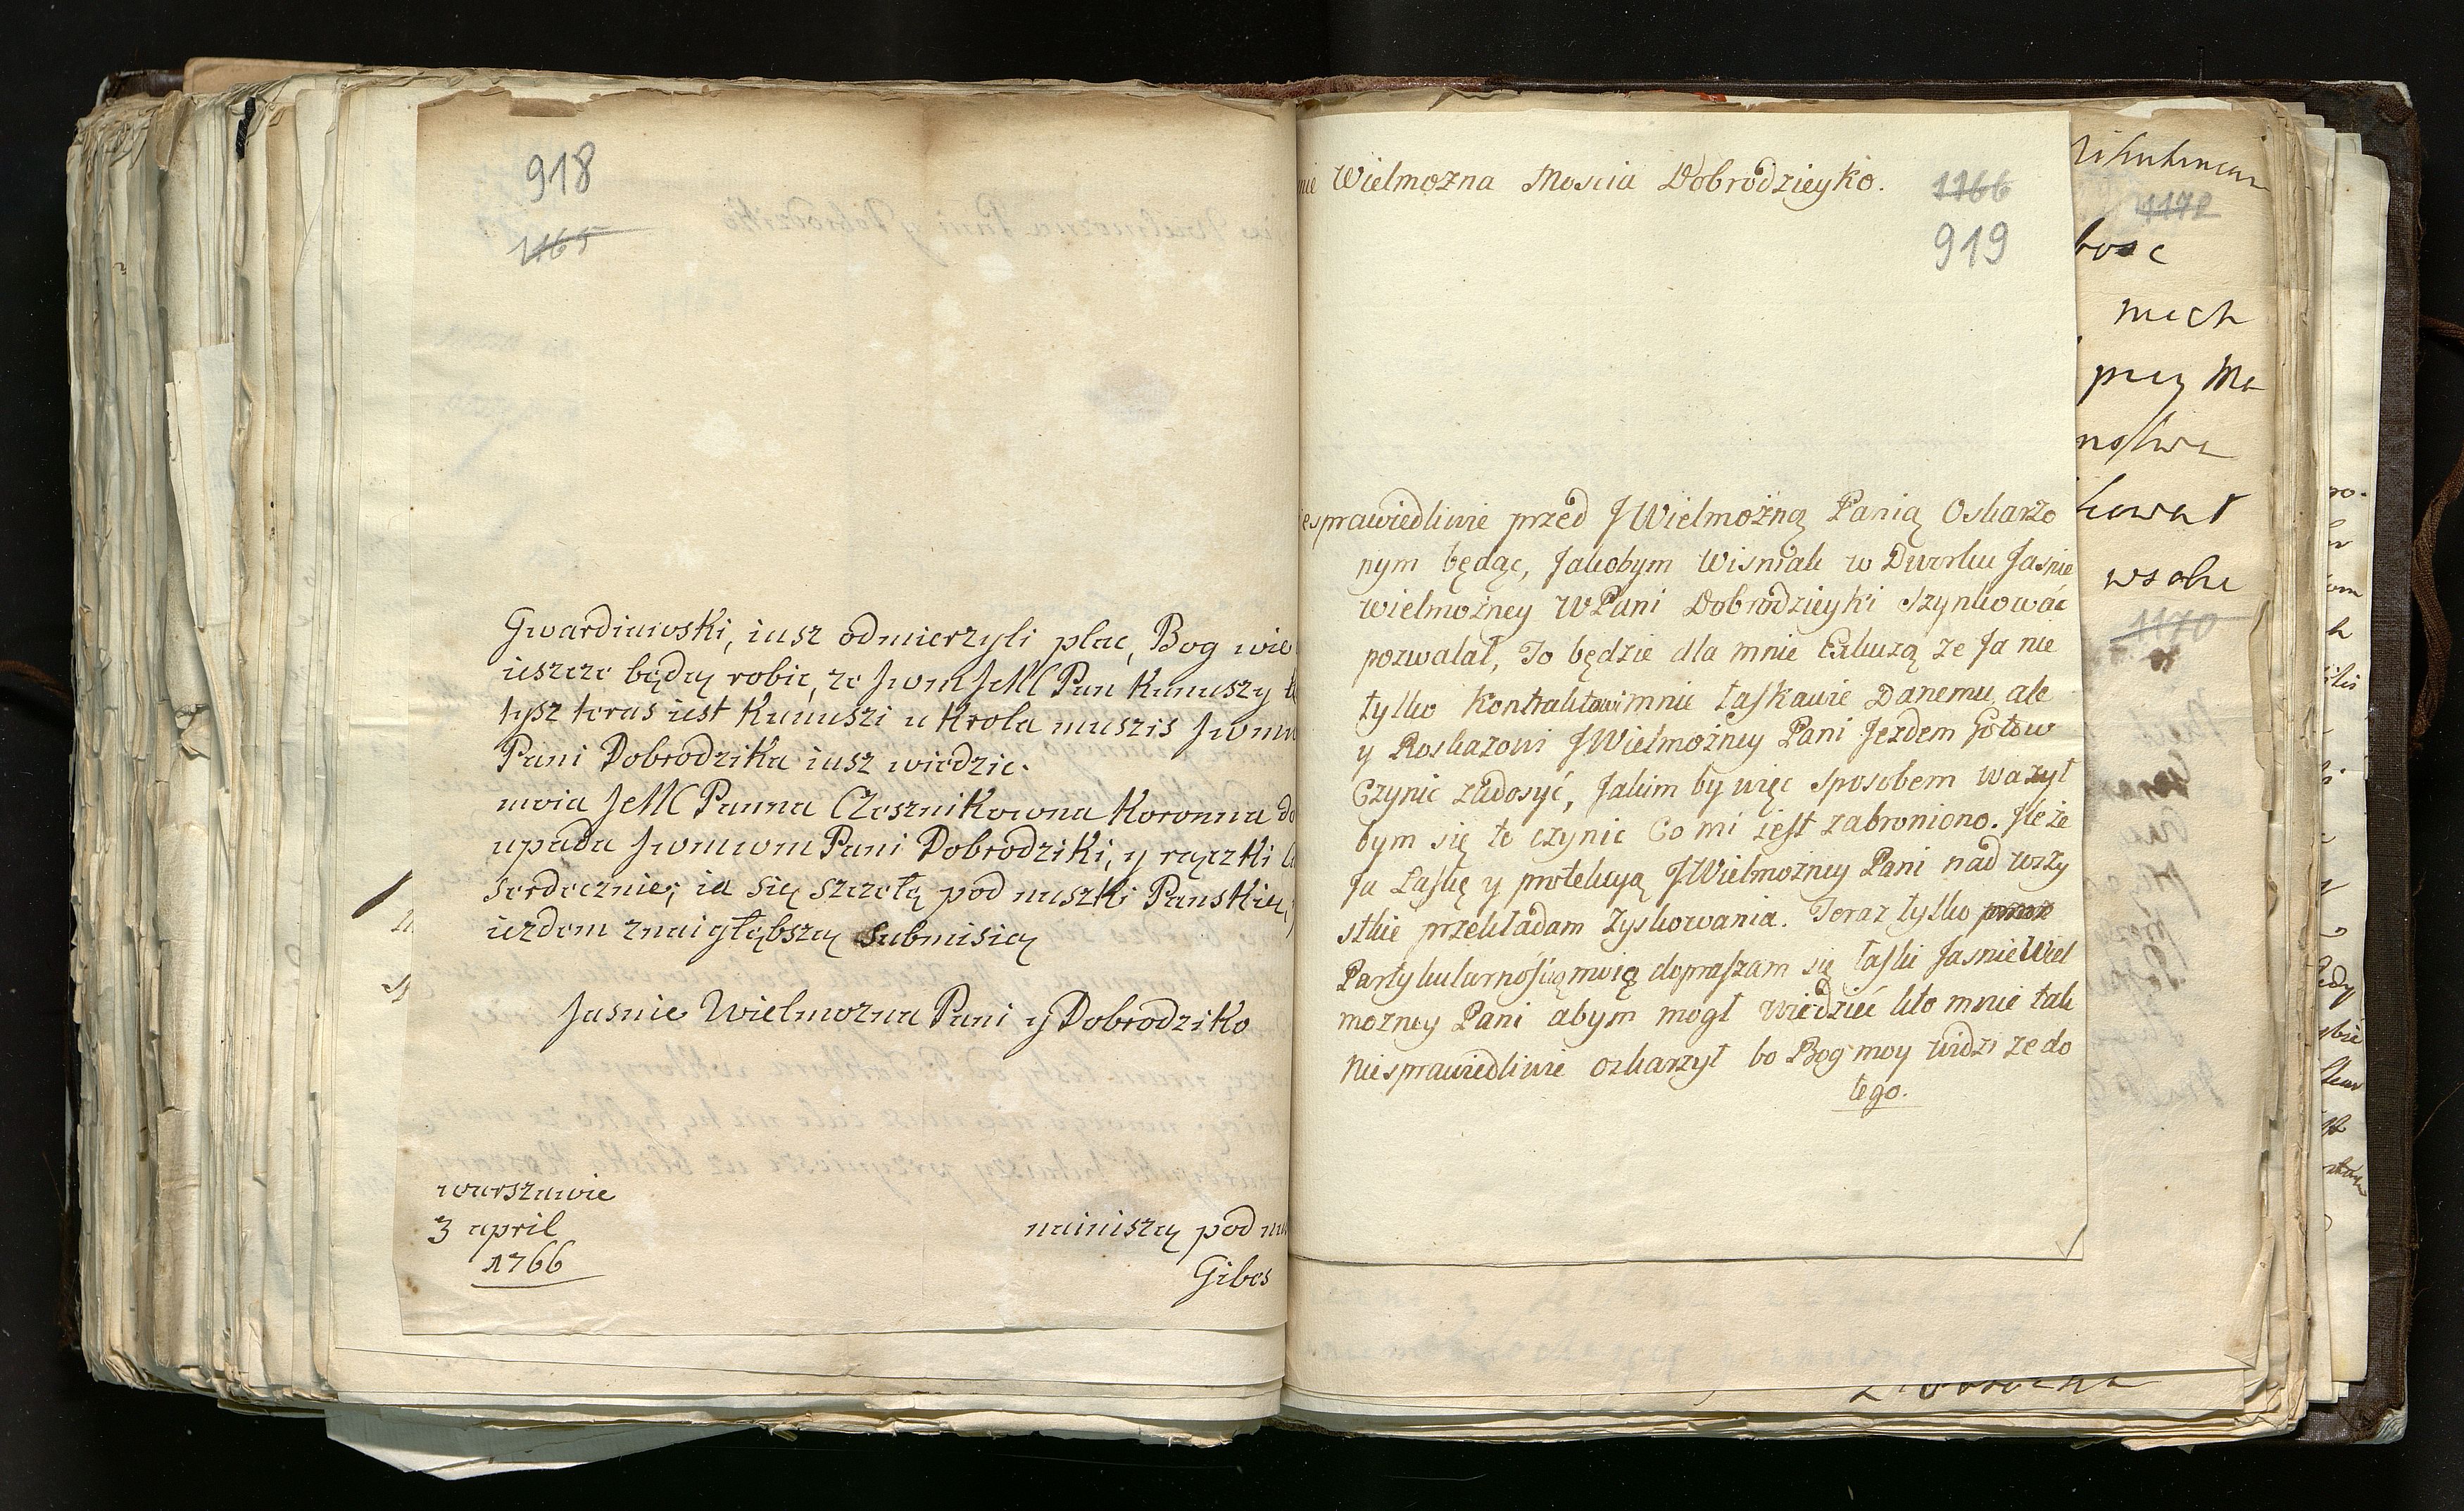 918
1165
Gwardiaiwski, iusz odmierzyli plac, Bog wie
ieszcze będą robic, ze Jwm JeMC Pan Kunuszy
tysz teras iest Kunuszi u Krola muszis Jwm
Pani Dobrodzika iusz wiedzic.
moia JeMC Panna Czesznikowna Koronna do
upada Jwmwm Pani Dobrodziki, y rączki
serdecznie; ia się szczelą pod nuszki Panskie,
iezdem znaigłębszą submisią
Jasnie Wielmozna Pani y Dobrodziko
warszawie
3 april
1766
nainiszą pod
Gibes
Wielmożna Moscia Dobrodzieyko.
1166
919
sprawiedliwie przed JWielmożną Panią Oskarżo
nym będąc, Jakobym Wisniak w Dworku Jasnie
wielmożney WPani Dobrodzieyki Szynkować
pozwalał, To będzie dla mnie Exkuzą ze Ja nie
tylko Kontraktowi mnie łaskawie Danemu, ale
y Roskazowi JWielmożney Pani Jezdem Gotow
Czynic zadosyć, Jakim by więc sposobem ważył
bym się to czynic Co mi jest zabroniono. Ile że
Ja Łaskę y protekcyą JWielmożney Pani nad wszy
stkie przekładam Zyskowania. Teraz tylko
Partykularnością moię dopraszam się łaski Jasnie Wiel
możney Pani abym mogł wiedzieć kto mnie tak
Niesprawiedliwie oskarzył bo Bog moy widzi ze do
tego.
1172
bosc
niech
przy Ma
kował
w sobie
1170